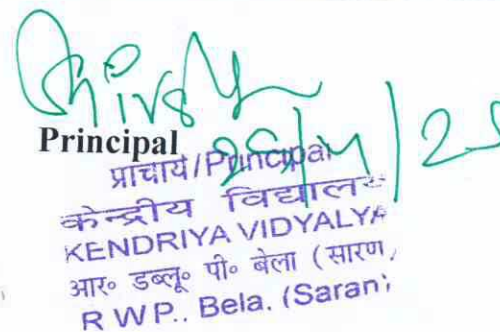 Principal
प्राचार्य/Principal
केन्द्रीय विद्यालय
KENDRIYA VIDYALYA
आर० डब्लू० पी० बेला (सारण)
R W P.. Bela. (Saran)